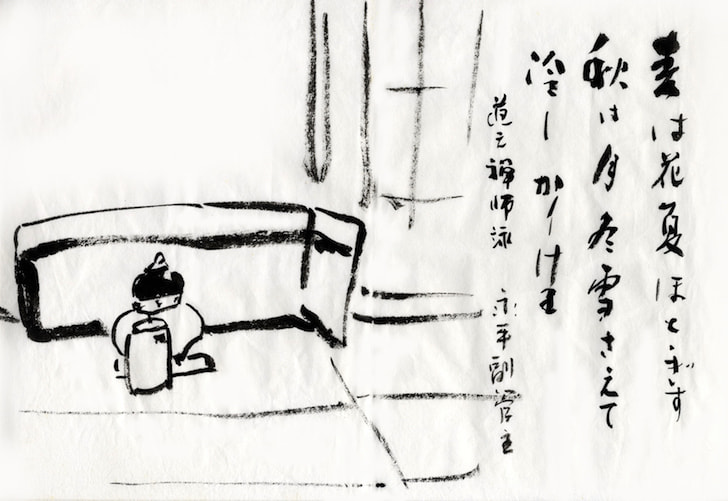 春は花夏ほとゝぎす
秋は月冬雪さえて
冷しかりけり
道元禅師詠
永平副管主